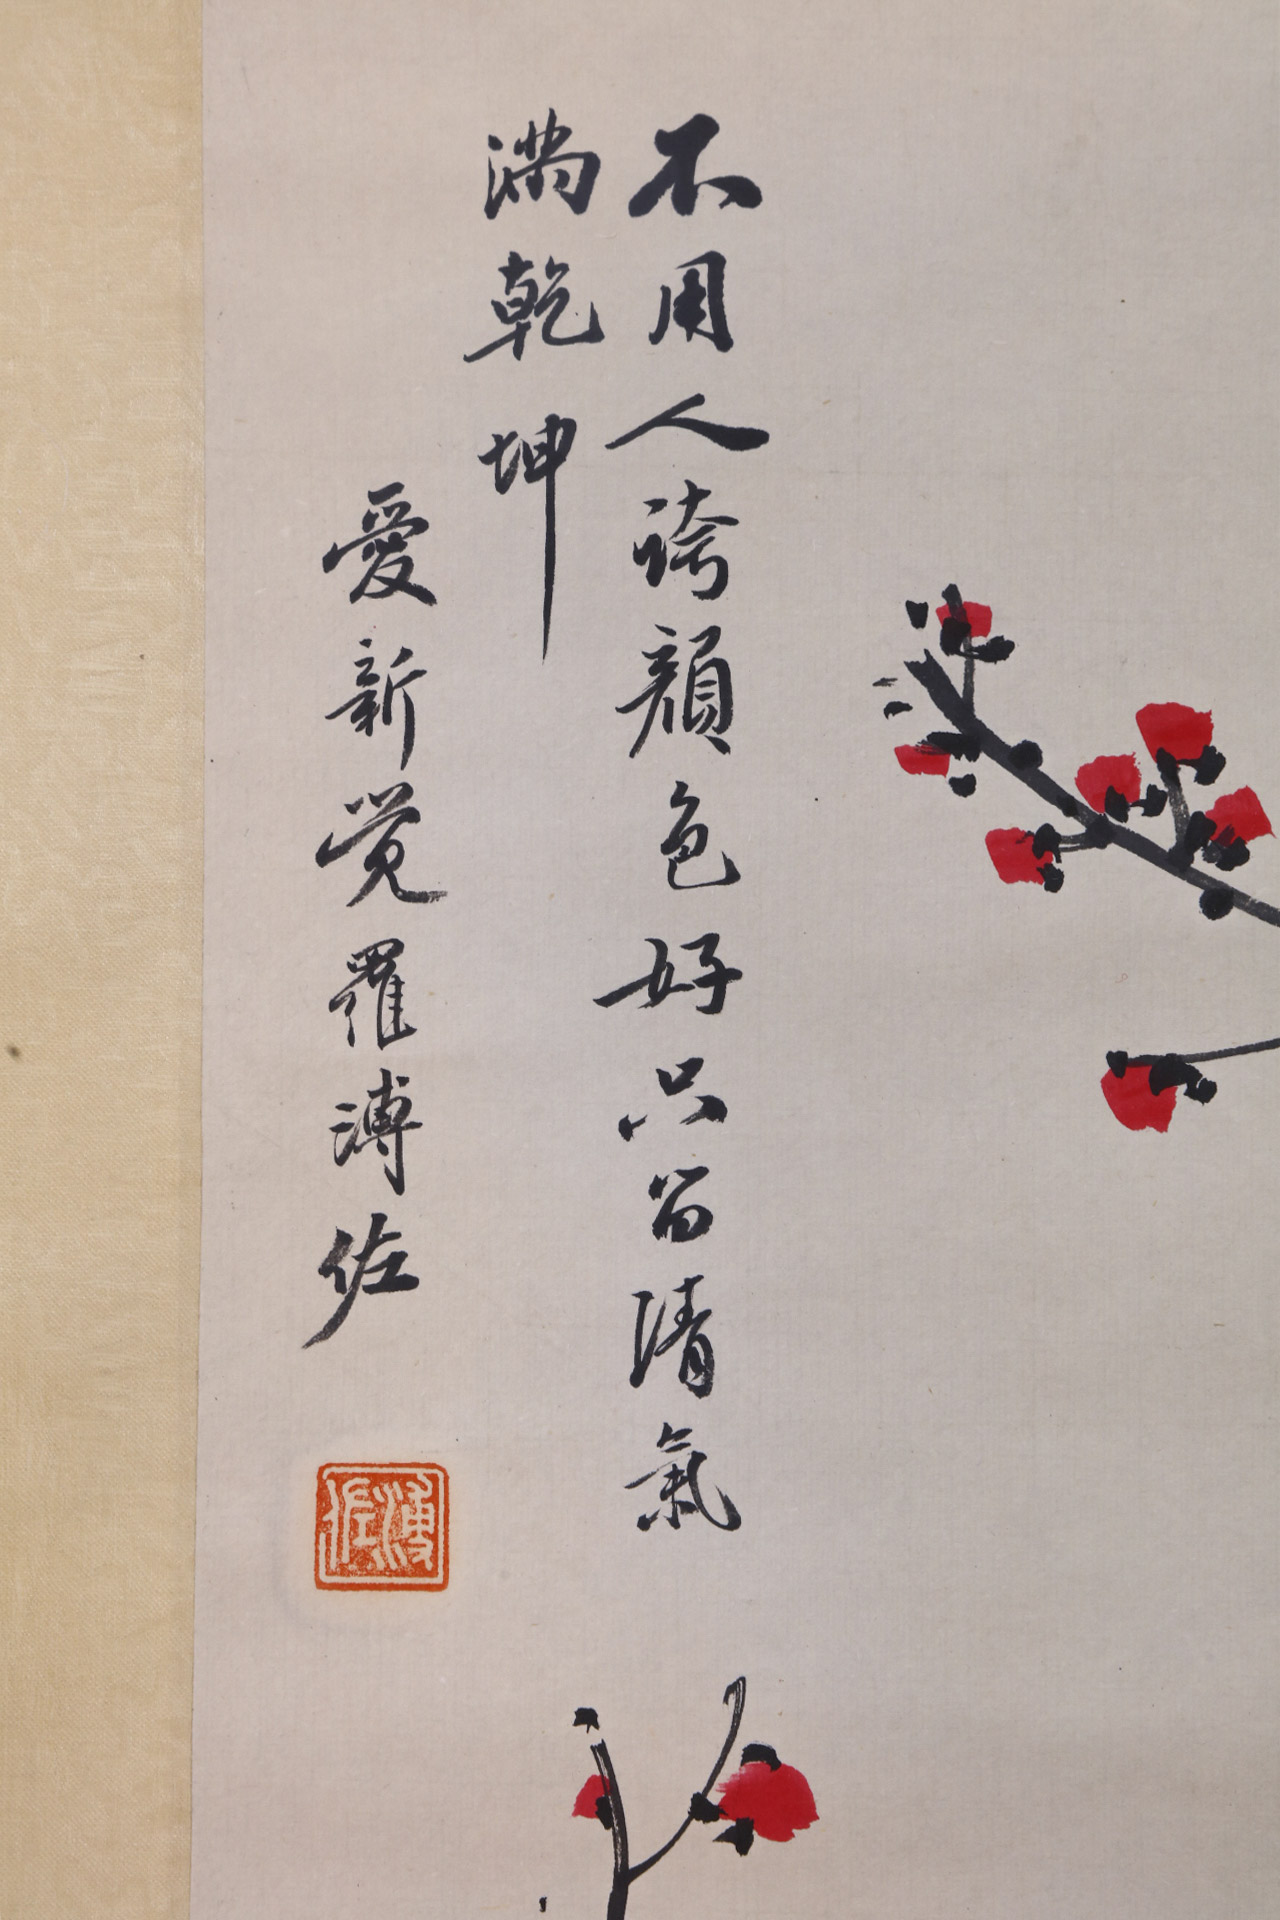 不用人誇顔色好只留清氣
滿乾坤
愛新觉羅溥佐
溥佐